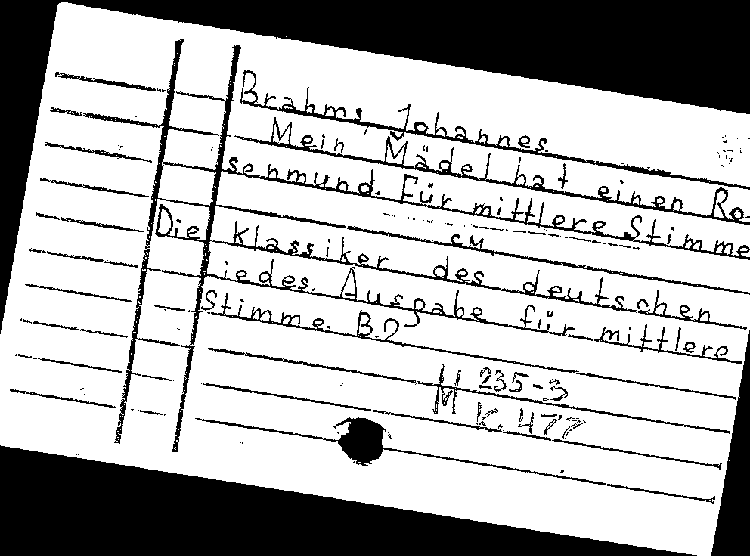 Brahms, Johannes
Mein Mädel hat einen Ro-
senmund. Für mittlere Stimme
см.
Die Klassiker des deutschen
Liedes. Ausgabe für mittlere
Stimme. B.
M 235-3
K. 477